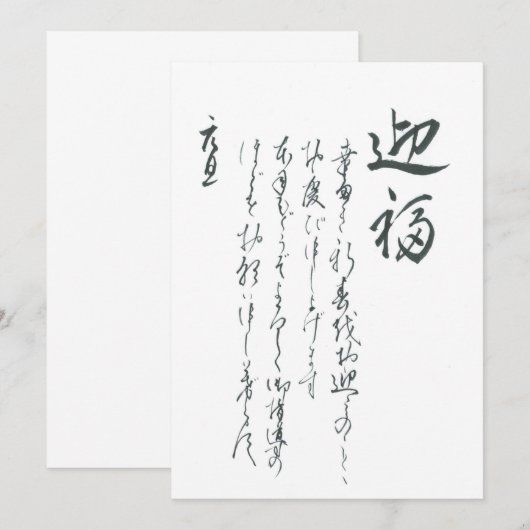 迎福
幸多き新春を御迎えのこと、
御慶び申し上げます
本年もどうぞよろしく御指導の
ほどを御願い申し
元旦